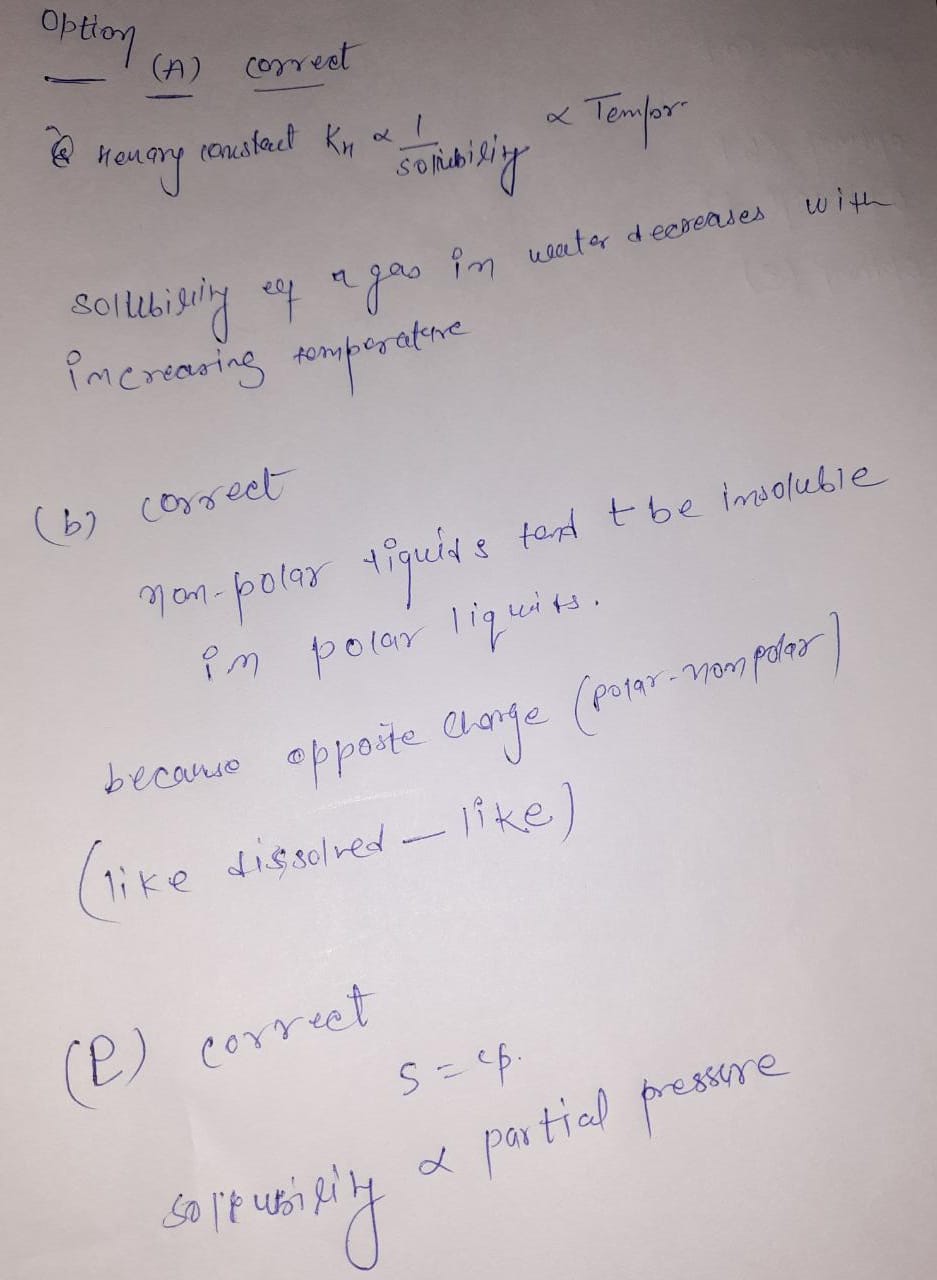 Option
(A) correct
Henary constact K_H ∝ 1/solubility ∝ Tempr
sollubility of a gas in water decreases with
increasing temperature
(b) correct
non-polar liquids tend t be insoluble
in polar liquits.
because opposite charge (polar-nonpolar)
(like dissolved – like)
(e) correct
S = cp.
solubility ∝ partial pressure